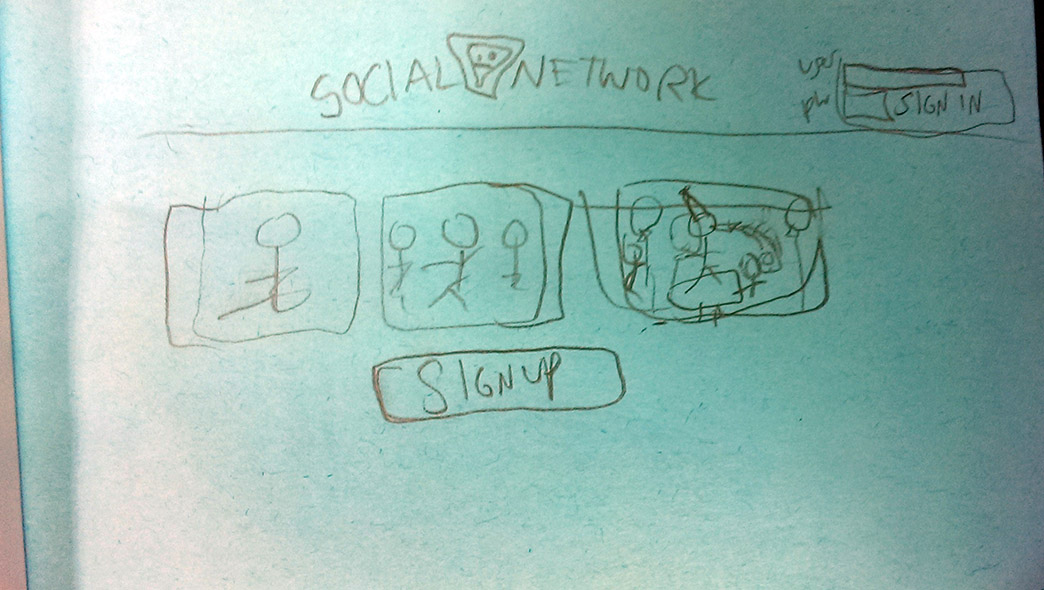 SOCIAL NETWORK
user
pw SIGN IN
SIGN UP